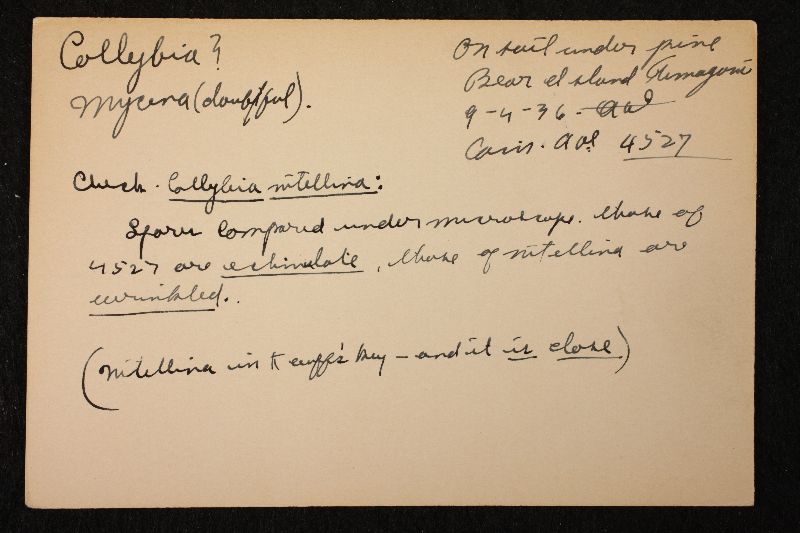 Collybia?
Mycena (doubtful).
On soil under pine
Bear Island Timagami
9-4-36.
Cain. 4527
Check. Collybia nitellina:
Spores compared under microscope. Those of
4527 are echinulate, those of nitellina are
wrinkled.
(Nitellina in Kauff's key - and it is close)